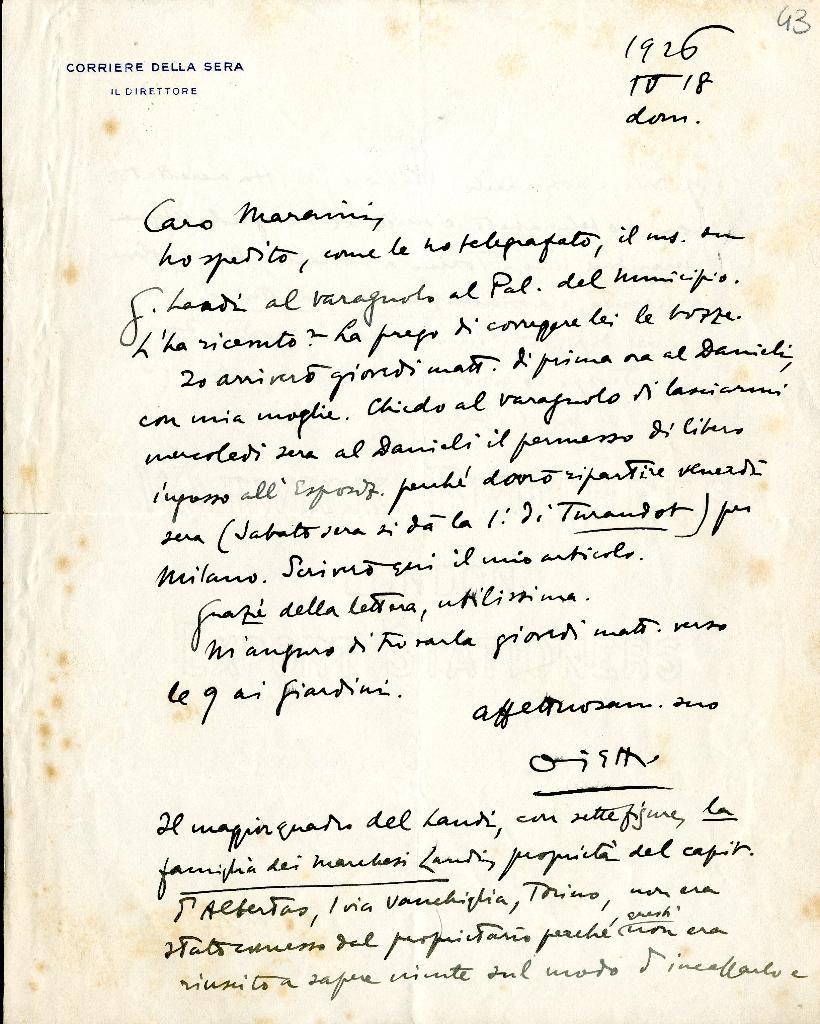 43
CORRIERE DELLA SERA
IL DIRETTORE
1926
IV 18
dom.
Caro Maraini,
ho spedito, come le ho telegrafato, il ms. su
G. Landi al Varagnolo al Pal. del Municipio.
L'ha ricevuto? La prego di correggere lei le bozze.
Io arriverò giovedì matt. di prima ora al Danieli,
con mia moglie. Chiedo al Varagnolo di lasciarmi
mercoledì sera al Danieli il permesso di libero
ingresso all'Esposiz. perché dovrò ripartire venerdì
sera (Sabato sera si dà la 1ª di Turandot) per
Milano. Scriverò qui il mio articolo.
Grazie della lettera, utilissima.
M'auguro di trovarla giovedì matt. verso
le 9 ai Giardini.
affettuosam. suo
Ojetti
Il maggior quadro del Landi, con sette figure, la
famiglia dei marchesi Landi, proprietà del capit.
d'Albertas, 1 via Vanchiglia, Torino, non era
stato concesso dal proprietario perché questi non era
riuscito a sapere niente sul modo d'incassarlo e